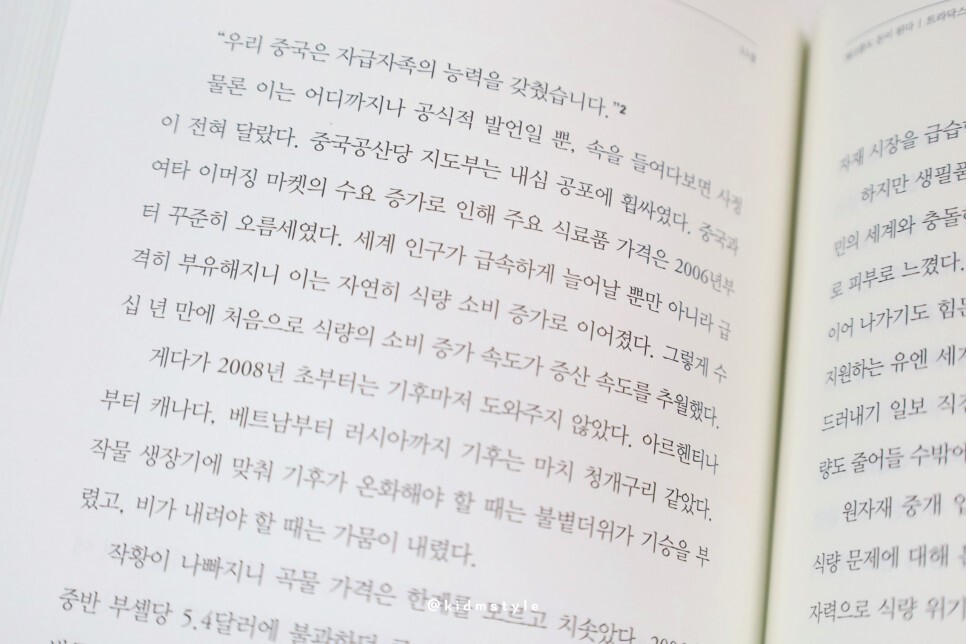 “우리 중국은 자급자족의 능력을 갖췄습니다.”²
물론 이는 어디까지나 공식적 발언일 뿐, 속을 들여다보면 사정
이 전혀 달랐다. 중국공산당 지도부는 내심 공포에 휩싸였다. 중국과
여타 이머징 마켓의 수요 증가로 인해 주요 식료품 가격은 2006년부
터 꾸준히 오름세였다. 세계 인구가 급속하게 늘어날 뿐만 아니라 급
격히 부유해지니 이는 자연히 식량 소비 증가로 이어졌다. 그렇게 수
십 년 만에 처음으로 식량의 소비 증가 속도가 증산 속도를 추월했다.
게다가 2008년 초부터는 기후마저 도와주지 않았다. 아르헨티나
부터 캐나다, 베트남부터 러시아까지 기후는 마치 청개구리 같았다.
작물 생장기에 맞춰 기후가 온화해야 할 때는 불볕더위가 기승을 부
렸고, 비가 내려야 할 때는 가뭄이 내렸다.
작황이 나빠지니 곡물 가격은 한계를 모르고 치솟았다.
중반 부셸당 5.4달러에 불과하던
@kidmstyle
자재 시장을
하지만 생필품
민의 세계와
로 피부로 느꼈다.
이어 나가기도
지원하는 유엔
드러내기 일보
량도 줄어들
원자재 중개
식량 문제에 대해
자력으로 식량